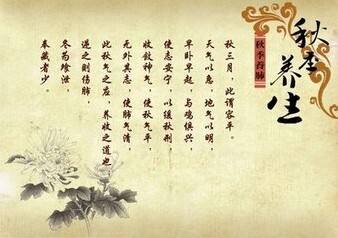 秋季养生
秋季养肺
秋三月，此谓容平，
天气以急，地气以明，
早卧早起，与鸡俱兴，
使志安宁，以缓秋刑，
收敛神气，使秋气平，
无外其志，使肺气清，
此秋气之应，养收之道也，
逆之则伤肺，
冬为飧泄，
奉藏者少。